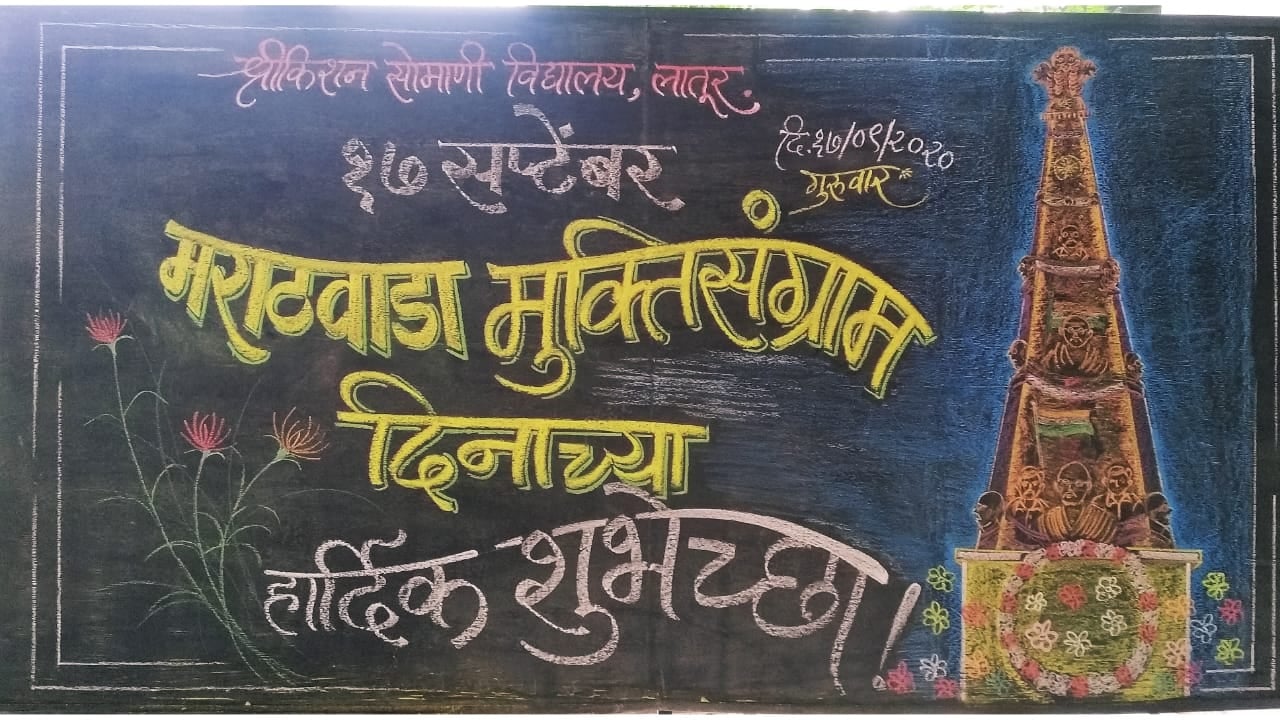 श्रीकिशन सोमाणी विद्यालय, लातूर.
१७ सप्टेंबर
दि.१७/०९/२०२०
गुरुवार
मराठवाडा मुक्तिसंग्राम
दिनाच्या
हार्दिक शुभेच्छा!